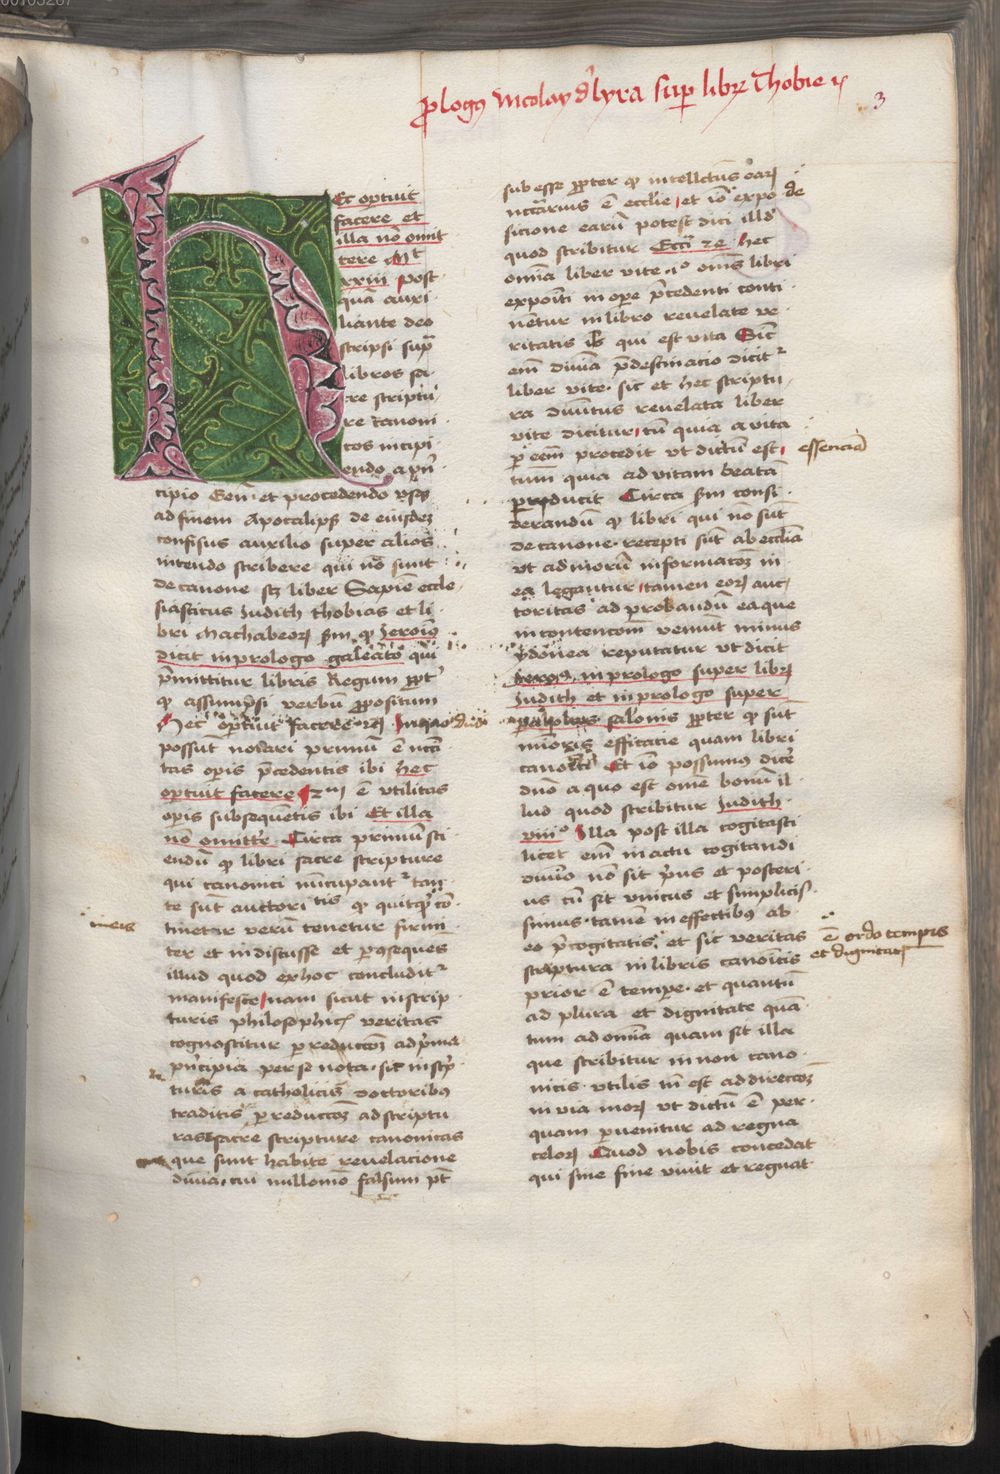 ꝓlogꝰ Nicolay d'lyra sup̱ libꝝ Thobie
3
Ec oꝑtuit
facere et
illa nō omit
tere Mᵗ
xxiii post
quā auxi
liante deo
scripsi sup̄
libros sa
cre scriptu
re canoni
cos incipi
endo a pⁿ
cipio Geñ et procedendo vsqꝫ
ad finem Apocalips̄ de eiusdeꝫ
confisus auxilio super alios
intendo scribere qui nō sunt
de canone scꝫ liber Sapiē eccle
siasticus Judith Thobias et li
bri Machabeoꝝ sm̄ qꝫ Jeroīꝰ
dicit in prologo galeato qui
p̄mittitur libris Regum ꝓpt̄
qꝫ assumpsi verbū ꝓpositum
Hec oꝑtuit facere
possūt notari primū ē ncc̄i
tas oꝑis p̄cedentis ibi hec
oꝑtuit facere ē vtilitas
oꝑis subsequētis ibi Et illa
nō omitt̄e Circa primū sci
endū qꝫ libri sacre scripture
qui canonici nūcupantᷣ tan
te sūt auctoritatis qꝫ quitqꝫ cō
tinetur verū tenetur firmi
ter et indiscusse et ꝑ ꝯseqꝫes
illud quod ex hoc concluditᷣ
manifeste nam sicut in scrip
turis philosophicꝭ veritas
cognoscitur ꝑ reductōꝫ ad pͥma
pⁿcipia per se nota sic in scͥp
turis a catholicis doctoribꝰ
traditis ꝑ reductōꝫ ad scriptu
ras sacre scripture canonicas
que sunt habite reuelacione
diuīa cui nullomō falsum pt̄
sub esse ꝓpter qꝫ intellectus eaꝝ
nccārius ē ecclīe et iō expo de
sicione earū potest dici illđ
quod scribitur Ecci 24 hec
omnia liber vite oīms libri
expoiti in oꝑe p̄cedenti conti
nentur in libro reuelate ve
ritatis ib̄ qui est vita Sic̄
em̄ diuīa p̄destinacio dicitᷣ
liber vite sic et hec scriptu
ra diuītus reuelata liber
vite dicitur tū quia a vita
ꝑ eem̄ procedit vt dictū est essenciā
tum quia ad vitam beatā
producit Circa sm̄ consi
derandū qꝫ libri qui nō sūt
de canone recepti sūt ab eccl̄ia
vt ad morū informatōꝫ in
ea legantur tamen eoꝝ auc
toritas ad probandū ea que
in contencōm veniūt minus
ydonea reputatur vt dicit
Jeroꝰ in prologo super libꝝ
Judith et in prologo super
salonis ꝓpter qꝫ sūt
mioris efficatie quam libri
canoici Et iō possumus dicē
dn̄o a quo est om̄e bonū il
lud quod scribitur Judith
viiiᵒ Illa post illa cogitasti
licet em̄ in actu cogitandi
diuino nō sit pͥus et posteri
us cū sit vnicus et simplicis
simus tamē in effectibꝰ ab
eo p̄cogitatis et sic veritas
scriptura in libris canoīcis
prior ē tempe et quantū
ad plura et dignitate quā
tum ad omīa quam sit illa
que scribitur in non cano
nicis vtilis tn̄ est ad directōꝫ
in via moꝝ vt dictū ē per
quam ꝑuenitur ad regna
celoꝝ Quod nobis concedat
qui sine fine viuit et regnat
ē ordo temporis
et dignitatꝭ